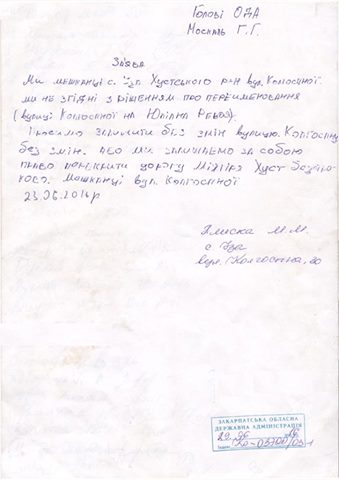 Голові ОДА
Москаль Г.Г.
Заява
Ми мешканці с. Іза Хустського р-н вул. Колгоспної.
ми не згідні з рішенням про переименовання
(вулиці Колгоспної на Юліана Ревая).
І просимо залишити без змін вулицю Колгоспну
без змін. Або ми залишаємо за собою
право перекрити дорогу Міжгіря Хуст
Мешканці вул. Колгоспної
23.06.2016р
Ялиска М.М.
с Іза
вул. Колгоспна,
ЗАКАРПАТСЬКА ОБЛАСНА
ДЕРЖАВНА АДМІНІСТРАЦІЯ